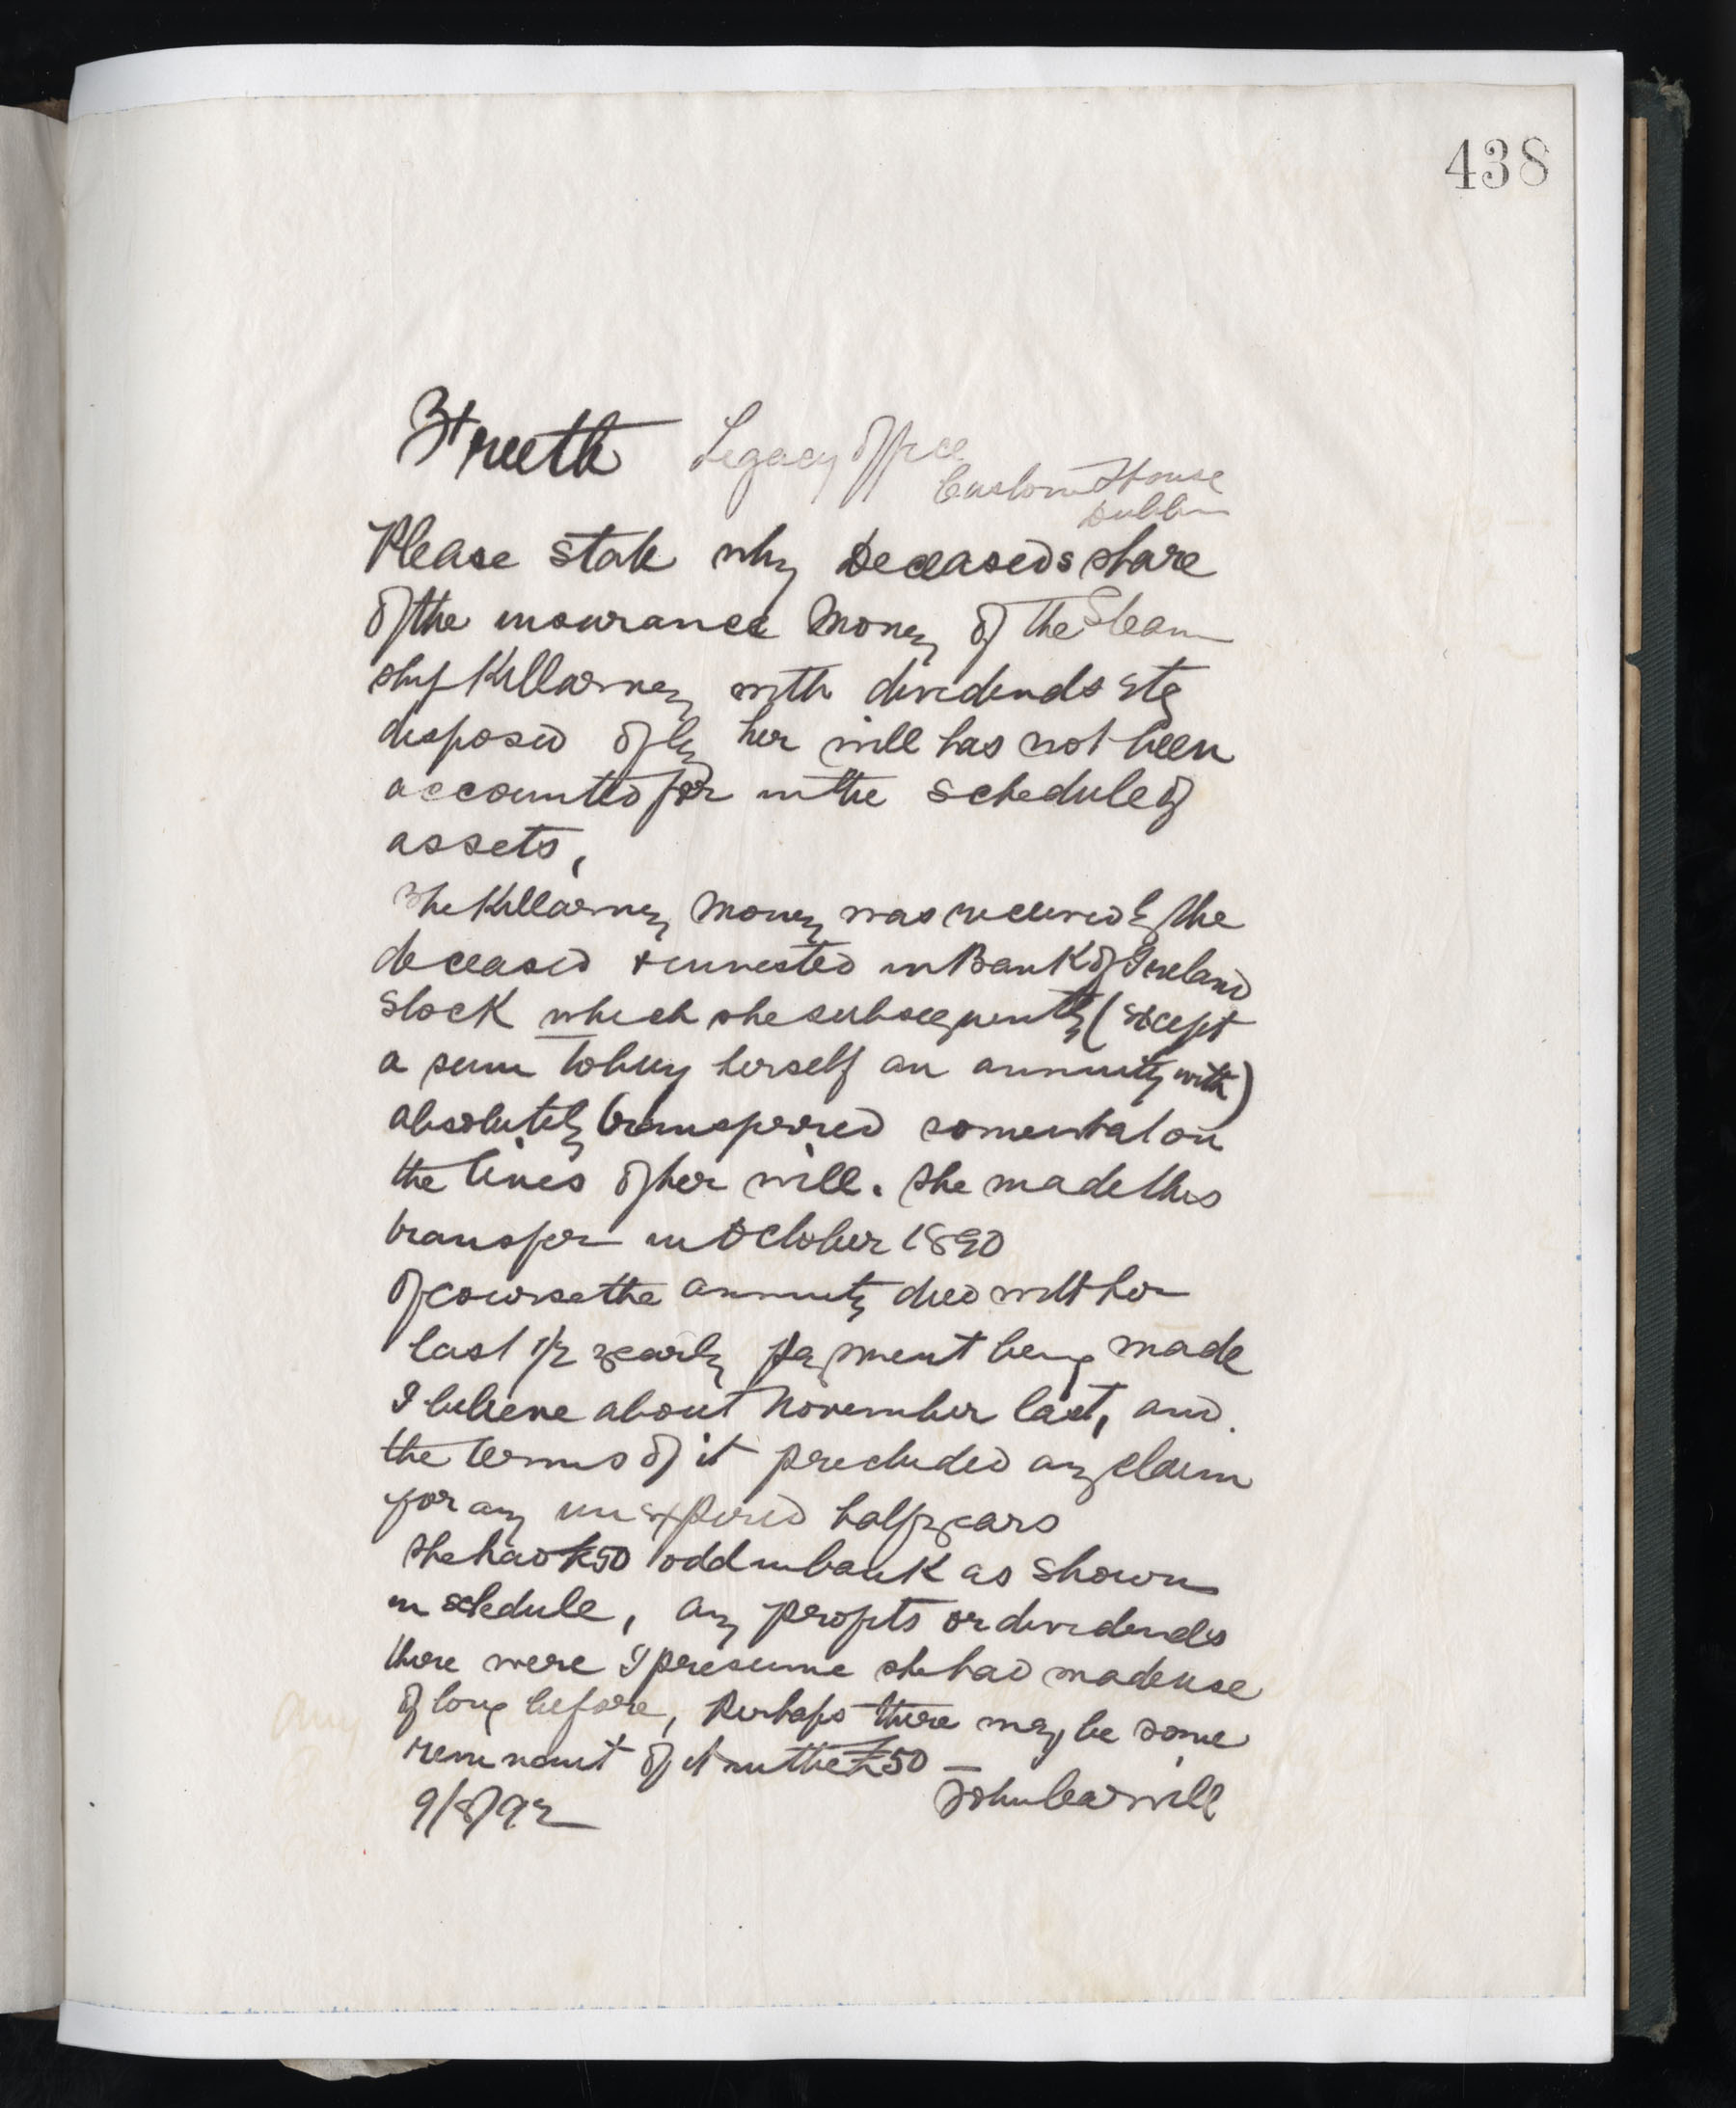 438
Legacy Office
Custom House
Dublin
Please state why Deceaseds share
of the insurance money of the Steam
ship Killarney with dividends etc
disposed of by her will has not been
accounted for in the schedule of
assets,
The Killarney money was received by the
deceased & invested in Bank of Ireland
stock which she subsequently (except
a sum to buy herself an annuity with)
absolutely transferred somewhat on
the lines of her will. She made this
transfer in October 1890
Of course the annuity died with her
last 1/2 yearly payment being made
I believe about November last, and
the terms of it precluded any claim
for any unexpired half years
She had £50 odd in bank as shown
in schedule, any profits or dividends
there were I presume she had made use
of long before, Perhaps there may be some
remnant of it in the £50 —
9/8/92 John Carvill